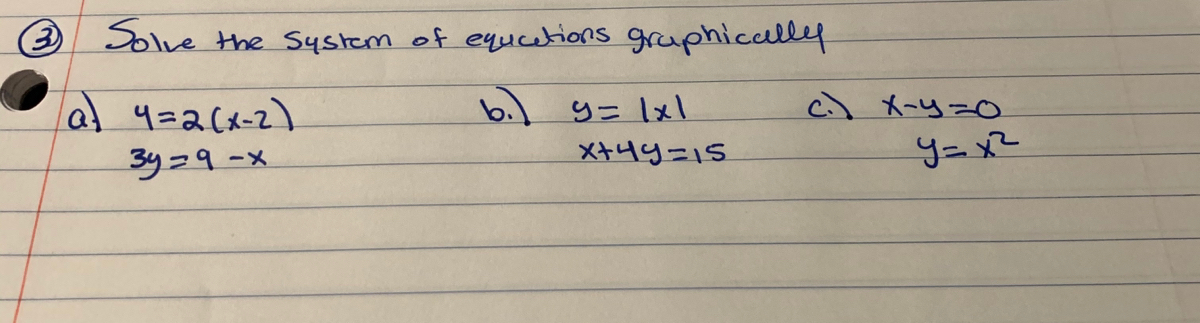 ③ Solve the system of equations graphically
a.) y=2(x-2) b.) y= |x| c.) x-y=0
3y=9-x x+4y=15 y=x²